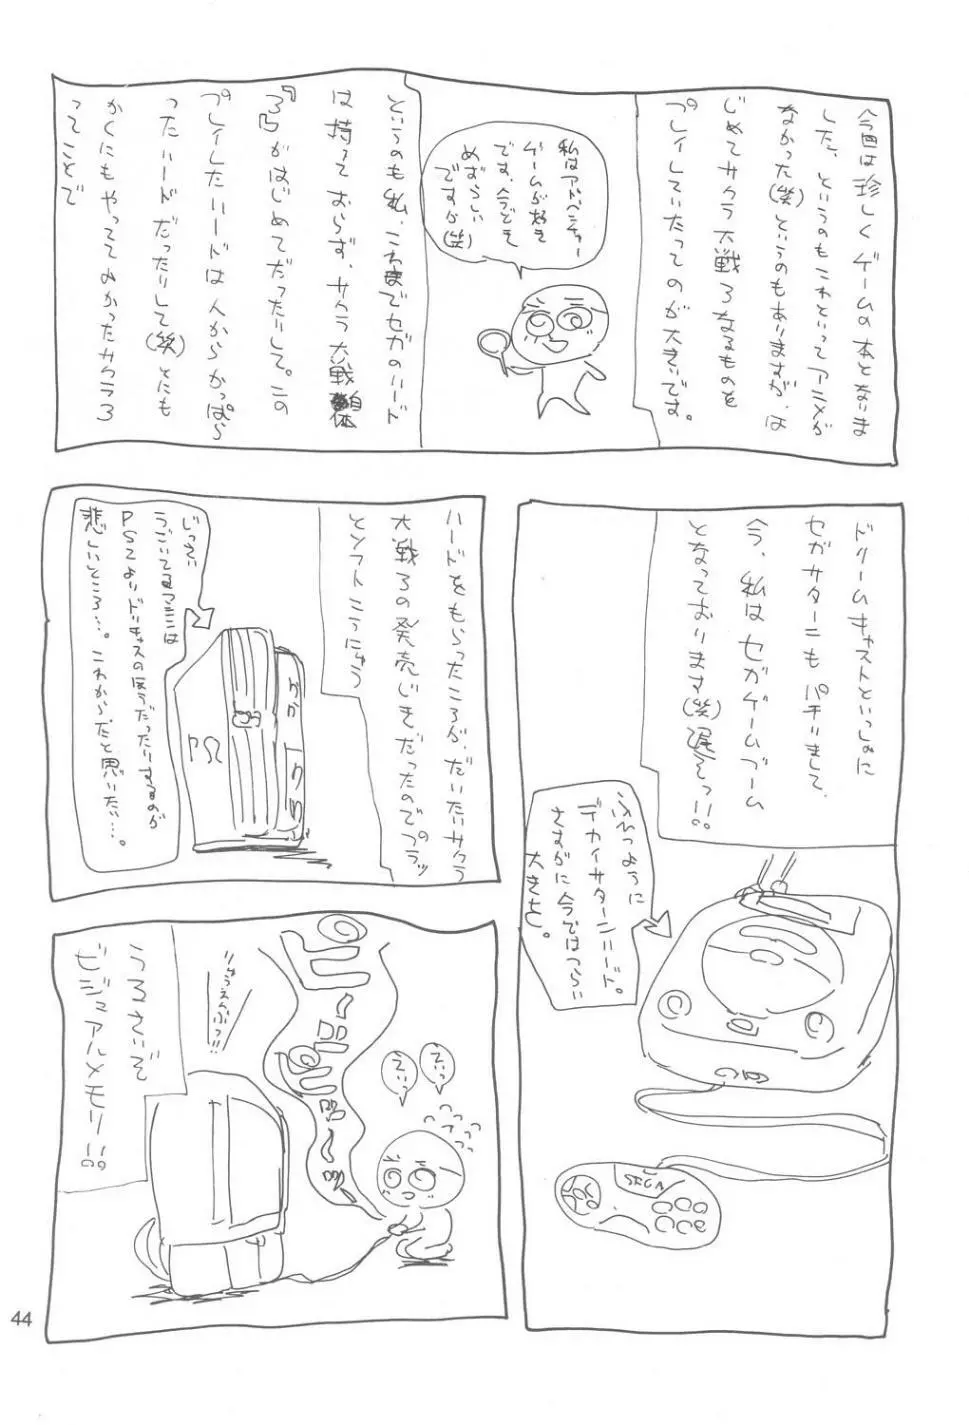 今回は珍しくゲームの本となりま
した。というのもこれといってアニメが
なかった(笑)というのもありますが、は
じめてサクラ大戦3なるものを
プレイしていたってのが大きいです。
私はアドベンチャー
ゲームが好き
です。今どき
めずらしい
ですが(笑)
というのも私、これまでセガのハード
は持っておらず、サクラ大戦自体
『3』がはじめてだったりして。この
プレイしたハードは人からかっぱら
ったハードだったりして(笑)とにも
かくにもやっててよかったサクラ3
ってことで
ドリームキャストといっしょに
セガサターンもパチりまして、
今、私はセガゲームブーム
となっております(笑)遅そっ!!
ふれつように
デカイサターンハード。
さすがに今ではつらい
大きさ。
SEGA
ハードをもらったころが、だいたいサクラ
大戦3の発売じきだったのでプラッ
とソフトこうにゅう
じっさい
うごいてるマシンは
PS2よりドリキャスのほうだったりするのが
悲しいところ…。これからだと思いたい…。
PS2
うるさいぞ
ビジュアルメモリー!!
ピーーー
えいっ
えいっ
44